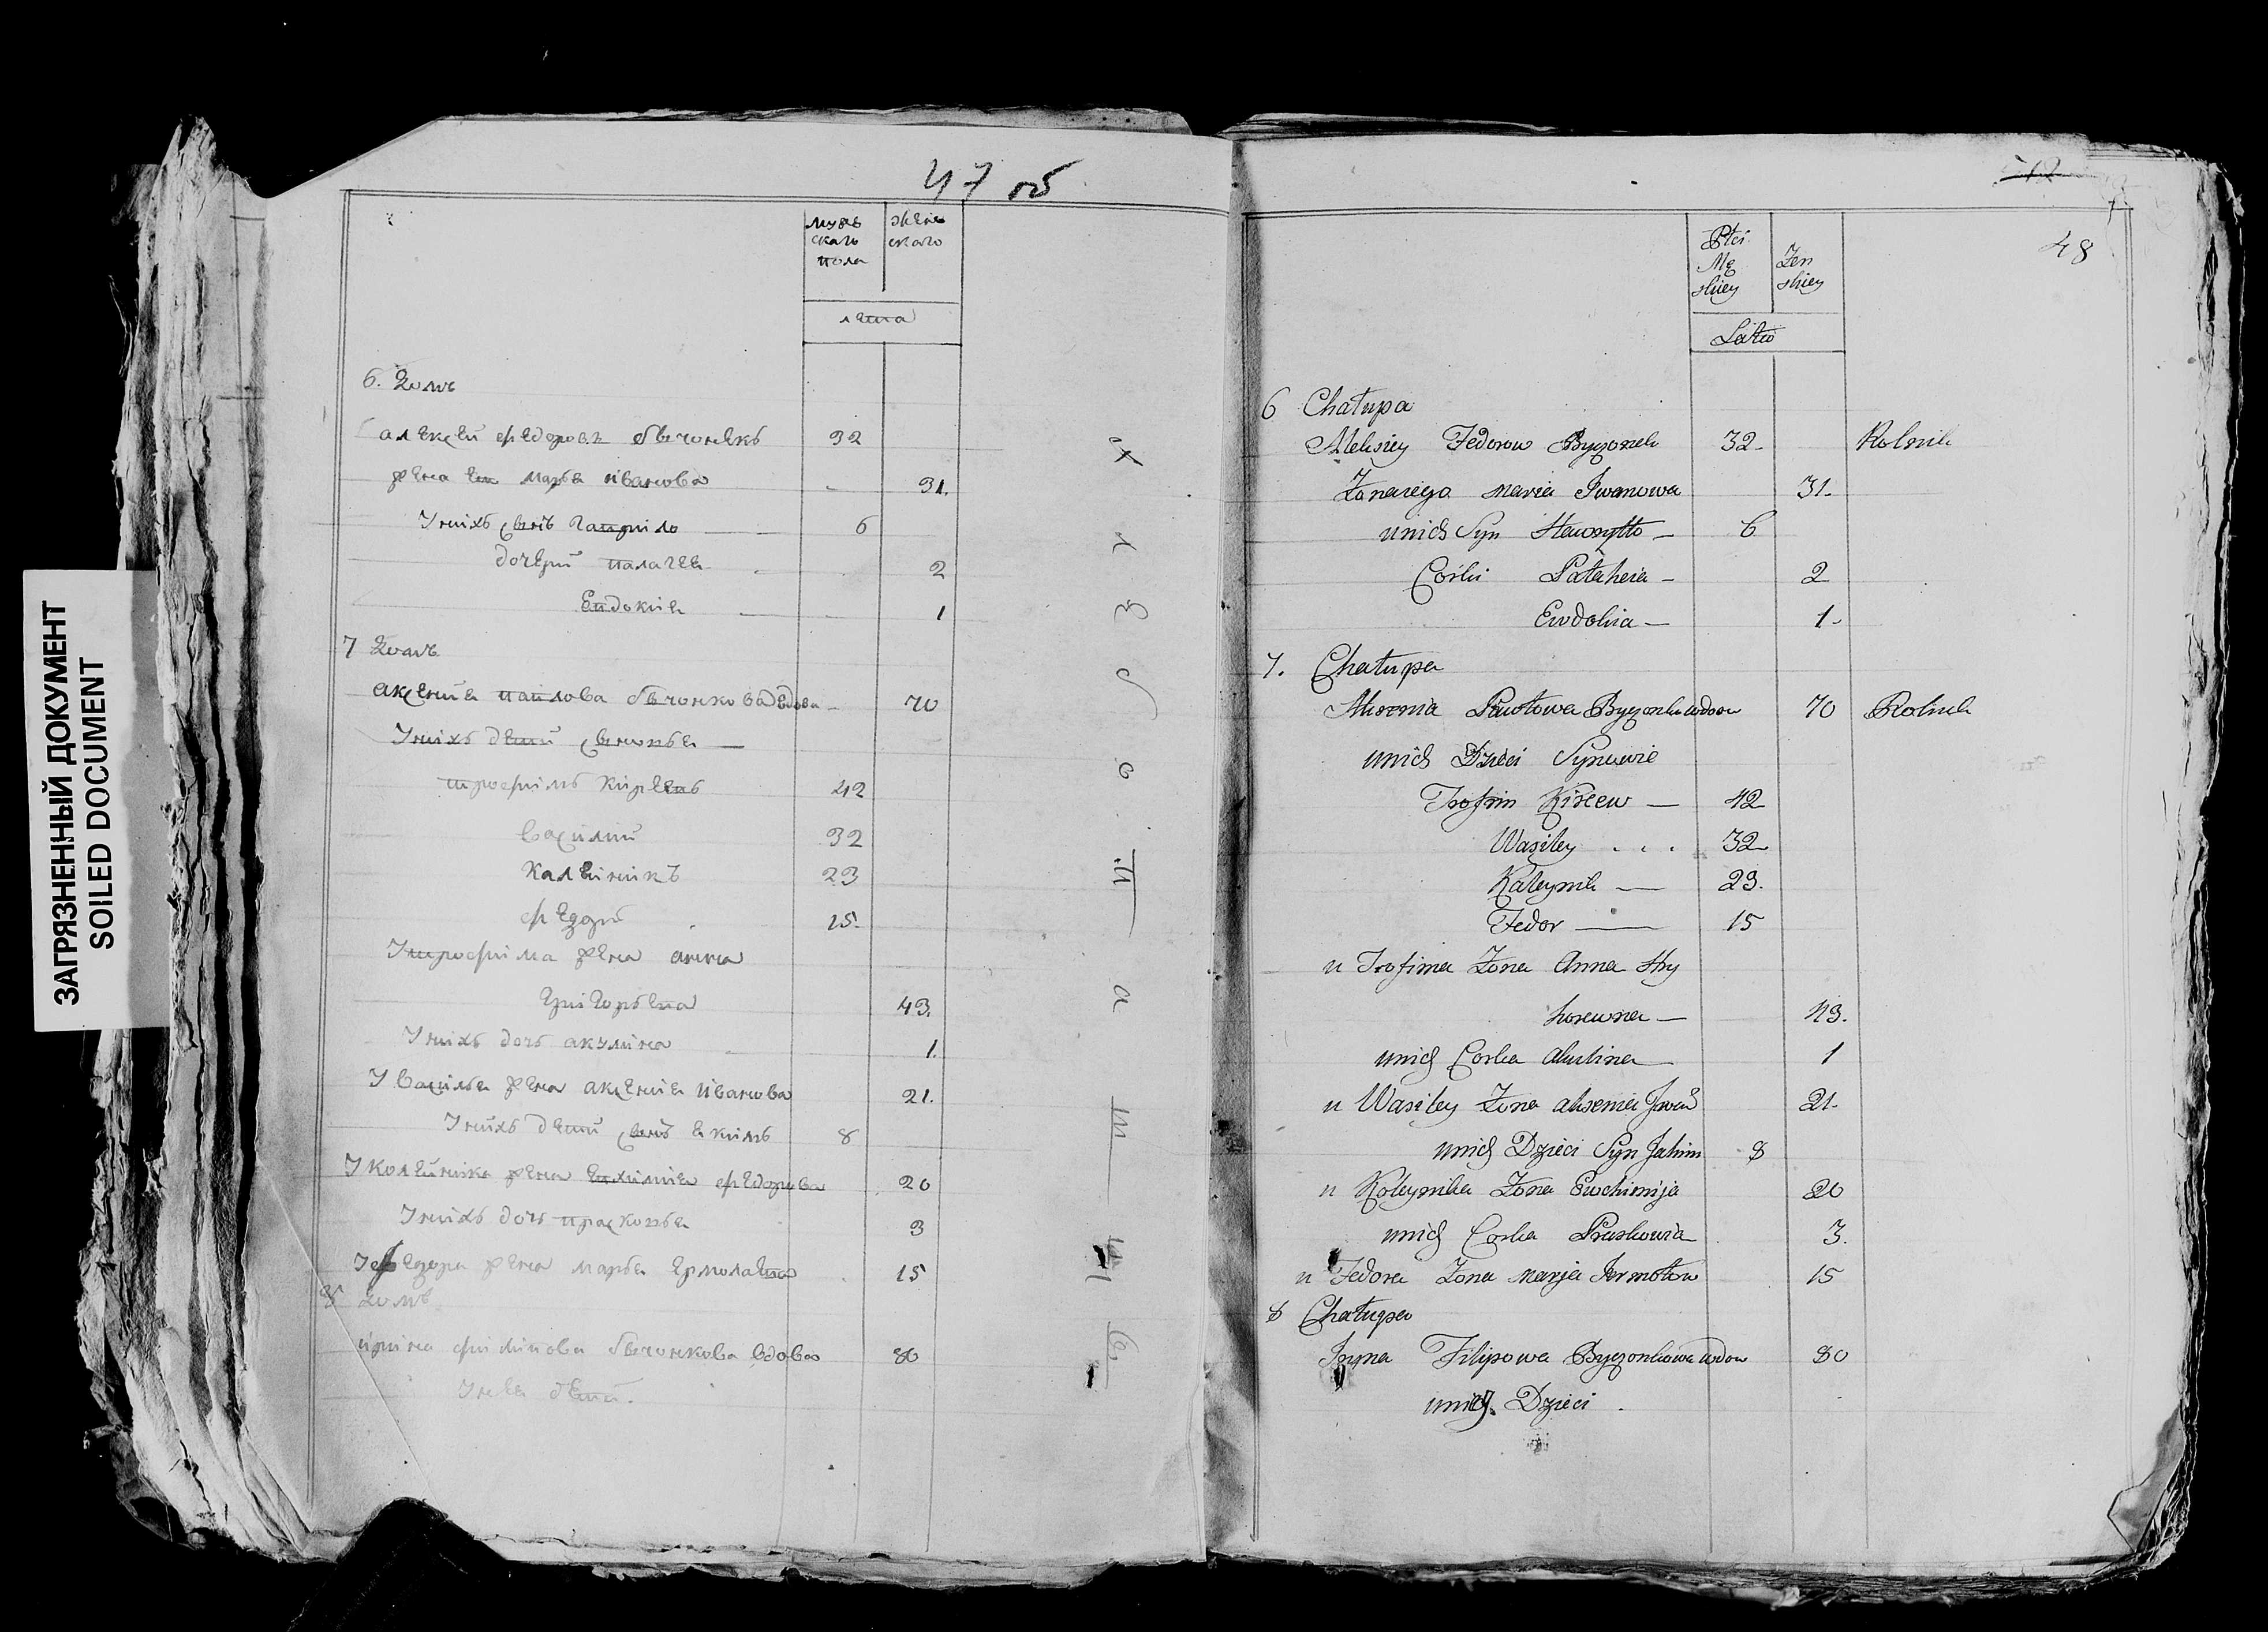 ЗАГРЯЗНЕННЫЙ ДОКУМЕНТ
SOILED DOCUMENT
47 об
мужь женс
скаго скаго
пола
лета
6. Домъ
алексей федоровъ бычонекъ 32
жена ево марья иванова 31.
У нихъ сынъ гаврило 6
дочери палагея 2
Евдокия 1
7 Домъ
аксения павлова бычонкова вдова 70
У нихъ дети сыновья
трофимъ киреевъ 42
василий 32
калейникъ 23
федоръ 15.
У трофима жена анна
григорьева 43.
У нихъ дочь акулина 1.
У василья жена аксения иванова 21.
У нихъ дети сынъ екимъ 8
У колейника жена евхимия федорова 20
У нихъ дочь прасковья 3
У федора жена марья ермолаева 15
8 домъ
ирина филипова бычонкова вдова 80
У нея дети.
х
л
е
б
о
п
а
ш
е
ц
12
48
Płci
Mę Żen
skiey skiey
Latió
6 Chałupa
Aleksiey Fedorow Byczonek 32 Rolnik
Żona iego maria Iwanowa 31.
unich Syn Hawryłło 6
Corki Pałaheia 2
Ewdokia 1
7. Chałupa
Aksenia Pawłowa Byczonkowa wdowa 70 Rolnik
unich Dzieci Synowie
Trofim Kireew 42
Wasiley . . . 32
Kaleynik 23.
Fedor 15
u Trofima Żona Anna Hry
horewna 43.
unich Corka akulina 1
u Wasiley Żona aksenia Iwań 21.
unich Dzieci Syn Jakim 8
u Koleynika Żona Ewchimija 20
unich Corka Praskowia 3.
u Fedora Żona marja Jermołow 15
8 Chałupa
Iryna Filipowa Byczonkowa wdow 80
unich Dzieci